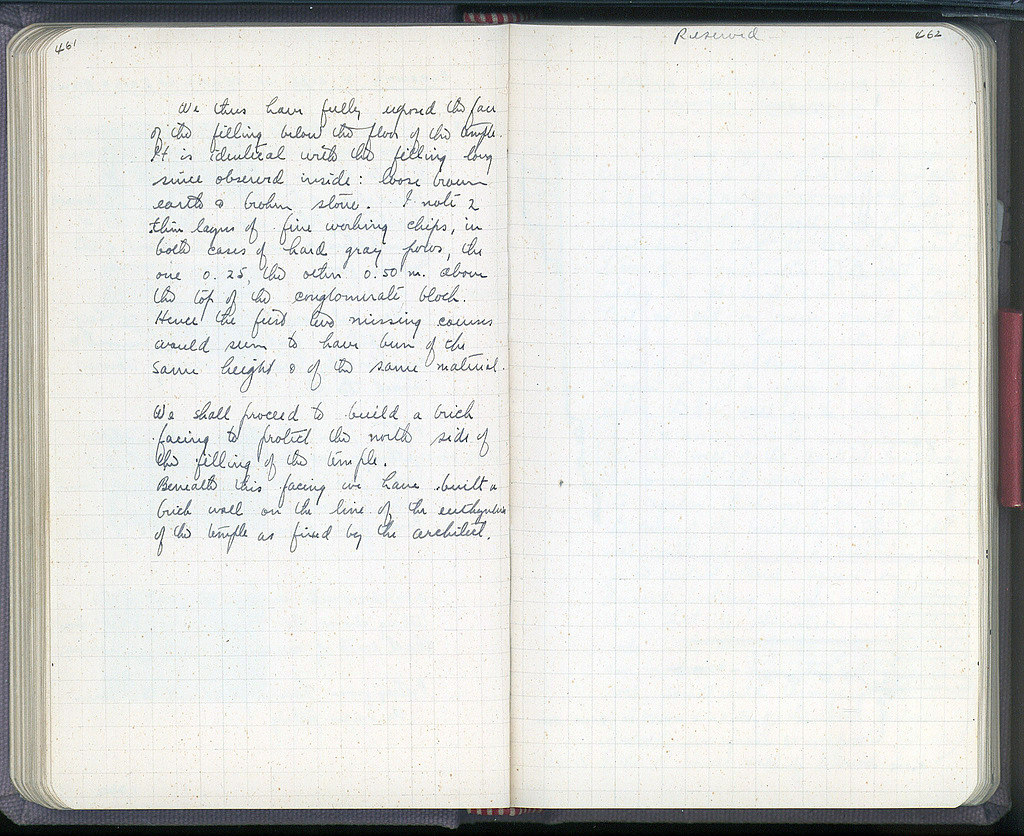 461
We thus have fully exposed the face
of the filling below the floor of the temple.
It is identical with the filling long
since observed inside: loose brown
earth & broken stone. I note 2
thin layers of fine working chips, in
both cases of hard gray poros, the
one 0.25, the other 0.50 m. above
the top of the conglomerate block.
Hence the first two missing courses
would seem to have been of the
same height & of the same material.
We shall proceed to build a brick
facing to protect the north side of
the filling of the temple.
Beneath this facing we have built a
brick wall on the line of the euthynteria
of the temple as fixed by the architect.
Reserved
462